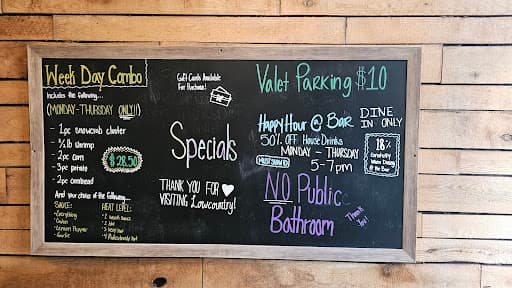 Week Day Combo
Includes the following...
(MONDAY-THURSDAY ONLY!!)
- 1pc snowcrab cluster
- ½ lb shrimp
- 2pc corn
- 3pc potato
- 2pc cornbread
$28.50
And your choice of the following...
SAUCE:
- Everything
- Cajun
- Lemon Pepper
- Garlic
HEAT LEVEL:
- 2 hot
Gift Cards Available
For Purchase!
Specials
THANK YOU FOR
VISITING Lowcountry!
Valet Parking $10
Happy Hour @ Bar
50% OFF House Drinks
MONDAY - THURSDAY
5-7pm
DINE
IN ONLY
18%
Gratuity
When Dining
@ the Bar
NO Public
Bathroom
Thank
You!